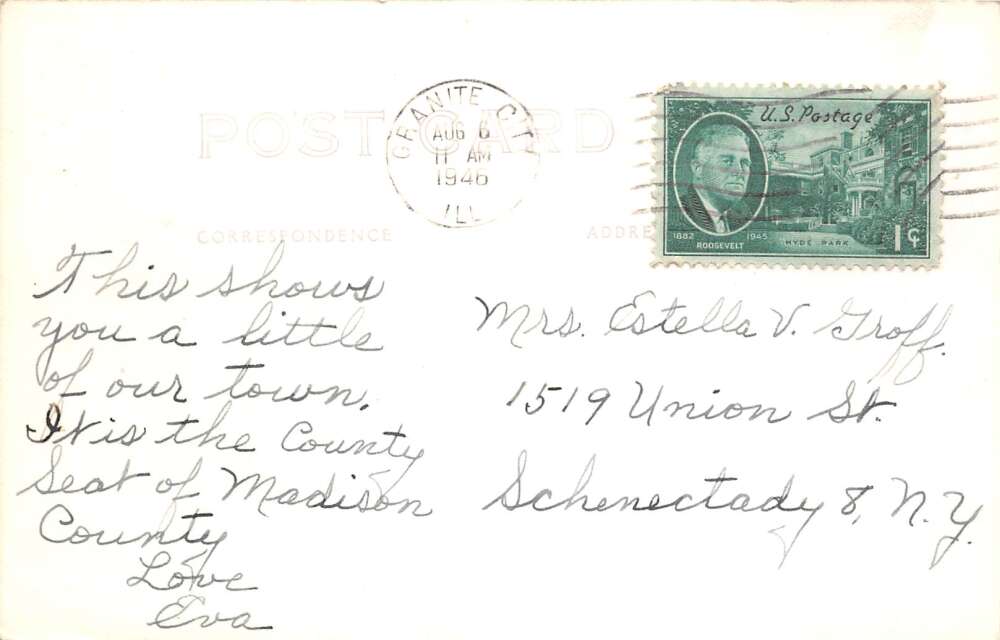 POST CARD
GRANITE CITY
AUG 6
11 AM
1946
ILL.
U.S. Postage
1882 1945
ROOSEVELT
HYDE PARK
1¢
CORRESPONDENCE
ADDRE
This shows
you a little
of our town.
It is the County
Seat of Madison
County
Love
Eva
Mrs. Estella V. Groff.
1519 Union St.
Schenectady 8, N.Y.